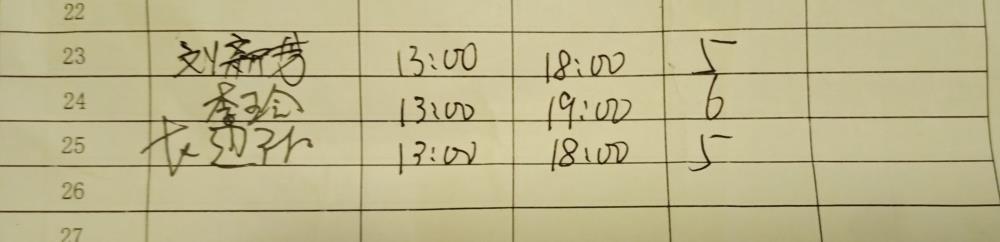 22
23 刘新芳 13:00 18:00 5
24 李玉会 13:00 19:00 6
25 13:00 18:00 5
26
27